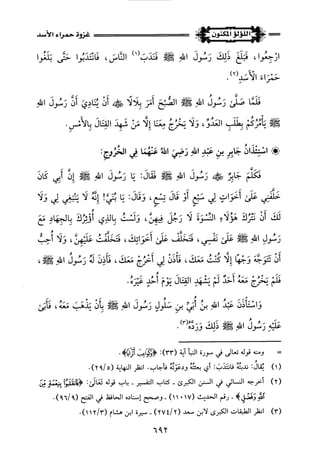 اللؤلؤ المكنون
غزوة حمراء الأسد
ارْجِعُوا، فَبَلَغَ ذَلِكَ رَسُولَ اللهِ ﷺ فَنَدَبَ(١) النَّاسَ، فَانْتَدَبُوا حَتَّى بَلَغُوا
حَمْرَاءَ الْأَسَدِ(٢).
فَلَمَّا صَلَّى رَسُولُ اللهِ ﷺ الصُّبْحَ أَمَرَ بِلَالًا ﷺ أَنْ يُنَادِيَ أَنَّ رَسُولَ اللهِ
ﷺ يَأْمُرُكُمْ بِطَلَبِ العَدُوِّ، وَلَا يَخْرُجُ مَعَنَا إِلَّا مَنْ شَهِدَ القِتَالَ بِالْأَمْسِ.
◉ اسْتِئْذَانُ جَابِرِ بنِ عَبْدِ اللهِ رَضِيَ اللهُ عَنْهُمَا فِي الخُرُوجِ:
فَكَلَّمَ جَابِرٌ رَسُولَ اللهِ ﷺ فَقَالَ: يَا رَسُولَ اللهِ إِنَّ أَبِي كَانَ
خَلَّفَنِي عَلَى أَخَوَاتٍ لِي سَبْعٍ أَوْ قَالَ تِسْعٍ، وَقَالَ: يَا بُنَيَّ! إِنَّهُ لَا يَنْبَغِي لِي وَلَا
لَكَ أَنْ نَتْرُكَ هَؤُلَاءِ النِّسْوَةَ لَا رَجُلَ فِيهِنَّ، وَلَسْتُ بِالذِي أُوثِرُكَ بِالجِهَادِ مَعَ
رَسُولِ اللهِ ﷺ عَلَى نَفْسِي، فَتَخَلَّفْ عَلَى أَخَوَاتِكَ، فَتَخَلَّفْتُ عَلَيْهِنَّ، وَلَا أُحِبُّ
أَنْ تَتَوَجَّهَ وَجْهًا إِلَّا كُنْتُ مَعَكَ، فَأْذَنْ لِي أَخْرُجْ مَعَكَ، فَأَذِنَ لَهُ رَسُولُ اللهِ ﷺ،
فَلَمْ يَخْرُجْ مَعَهُ أَحَدٌ لَمْ يَشْهَدِ القِتَالَ يَوْمَ أُحُدٍ غَيْرُهُ.
وَاسْتَأْذَنَ عَبْدُ اللهِ بنُ أُبَيِّ بنِ سَلُولٍ رَسُولَ اللهِ ﷺ بِأَنْ يَذْهَبَ مَعَهُ، فَأَبَى
عَلَيْهِ رَسُولُ اللهِ ﷺ ذَلِكَ وَرَدَّهُ(٣).
= ومنه قوله تعالى في سورة النبأ آية (٣٣): ﴿وَكَوَاعِبَ أَتْرَابًا﴾.
(١) يُقَالُ: نَدَبْتُهُ فَانْتَدَبَ: أي بعثْتُهُ ودعَوْتُهُ فأجاب. انظر النهاية (٢٩/٥).
(٢) أخرجه النسائي في السنن الكبرى - كتاب التفسير - باب قوله تَعَالَى: ﴿فَانْقَلَبُوا بِنِعْمَةٍ مِنَ
اللَّهِ وَفَضْلٍ﴾ - رقم الحديث (١١٠١٧) - وصحح إسناده الحافظ في الفتح (٩٦/٩).
(٣) انظر الطبقات الكبرى لابن سعد (٢٧٤/٢) - سيرة ابن هشام (١١٢/٣).
٦٩٢